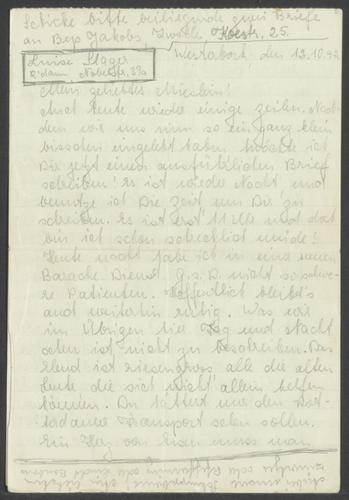 Schicke bitte beiliegende zwei Briefe
an Bep Jakobs, Zwolle, 25.
Luise
R'dam 33a
Westerbork, den 13.10.42
Mein geliebtes Mieslein!
Auch heute wieder einige Zeilen. Nach-
dem wir uns nun so ein ganz klein
bisschen eingelebt haben möchte ich
Dir jetzt einen ausführlichen Brief
schreiben! Es ist wieder Nacht und
benutze ich die Zeit um Dir zu
schreiben. Es ist erst 11 Uhr und doch
bin ich schon schrecklich müde!
Heute nacht habe ich in einer neuen
Baracke Dienst. G.s.D. nicht so schwe-
re Patienten. Hoffentlich bleibt's
auch weiterhin ruhig. Was wir
im Übrigen hier Tag und Nacht
sehen ist nicht zu beschreiben. Das
Elend ist riesengross alle die alten
Leute die sich nicht allein helfen
können. Du hättest nur den Rot-
terdamer Transport sehen sollen.
Ein Herz von Eisen muss man